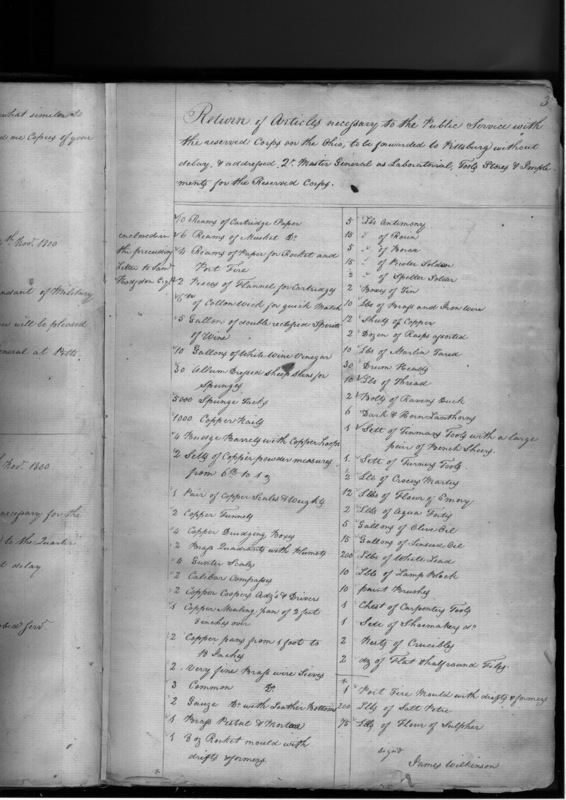 3
what similar to
d me Copies of your
th Novr. 1800
ndant of Military
will be pleased
eneral at Pitts.
Novr. 1800.
necessary for the
to the Quarter
delay
Return of Articles necessary to the Public Service with
the reserved Corps on the Ohio, to be forwarded to Pittsburg without
delay, & addressed, Qr. Master General as Laboratorial, Tools Stores & Imple
ments for the Reserved Corps.
inclosed in
the preceeding
Letter to Saml
Hodgdon Esqr.
10 Reams of Cartridge Paper
6 Reams of Musket Do.
4 Reams of Paper for Rocket and
Port Fire
2 Pieces of Flannel for Cartridges
of Cotton Wick for quick Match
5 Gallons of double rectified Spirits
of Wine
10 Gallons of White Wine Vinegar
30 Allum Dressed Sheep skins for
Spunges
5000 Spunge Tacks
1000 Copper Nails
4 Budge Barrels with Copper hoops
2 Setts of Copper powder measures
from 6 lb to 1 oz
1 Pair of Copper Scales & Weights
2 Copper Funnels
4 Copper Drudging Boxes
2 Brass Quadrants with Plumets
4 Gunter Scales
2 Caliber Compasses
2 Copper Coopers Adz's & Drivers
1 Copper Mealing pan of 2 foot
8 inches over
2 Copper pans from 1 foot to
18 Inches
2 Very fine Brass wire Sieves
3 Common Do.
2 Gauze Do. with Leather Bottoms
1 Brass Pestal & Mortar
1 8 oz Rocket mould with
drifts & formers
5 Lbs Antimony
15 " of Rosin
5 " of Borax
15 " of Pewter Solder
3 " of Spelter Soldar
2 Boxes of Tin
10 Lbs of Brass and Iron wire
12 Sheets of Copper
2 Dozen of Rasps assorted
10 Lbs of Marlin Tared
30 Drum Heads
10 Lbs of Thread
2 Bolts of Ravens Duck
6 Dark & Horn Lanthorns
1 Sett of Tinmans Tools with a large
pair of Bench Sheers.
1 Sett of Turners Tools.
2 Lbs of Crocus Martis
12 Lbs of Flour of Emery
2 Lbs of Aqua Fortis
5 Gallons of Olive Oil
15 Gallons of Linseed Oil
200 Lbs of White Lead
10 Lbs of Lamp Black
10 paint Brushes
1 Chest of Carpenters Tools
1 Sett of Shoemakers Do.
2 Nests of Crucibles
2 dz of Flat & half round Files.
1 Port Fire Mould with drifts & formers
200 Lbs of Salt Petre
75 Lbs of Flour of Sulpher
signd
James Wilkinson